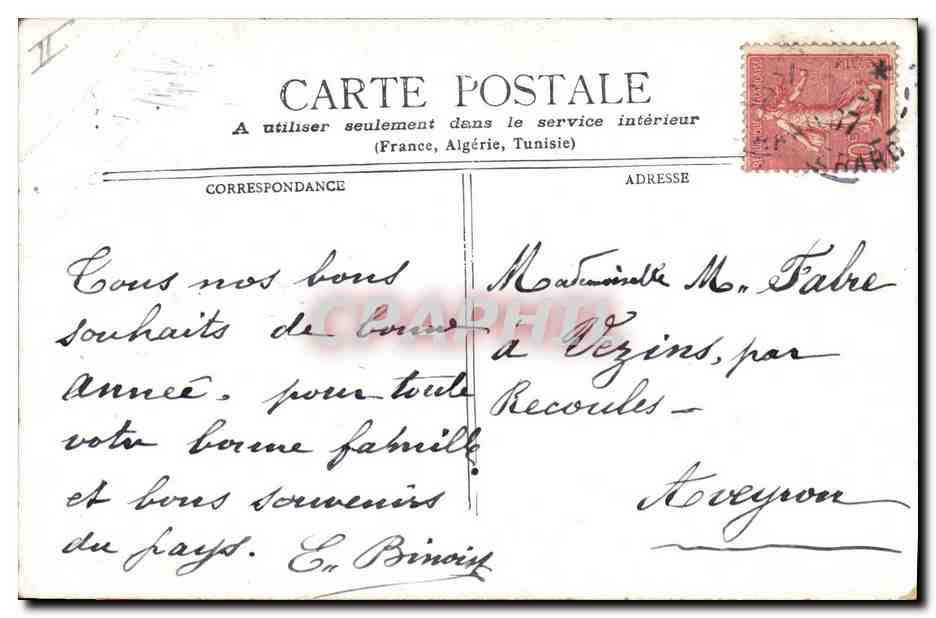 II
CARTE POSTALE
A utiliser seulement dans le service intérieur
(France, Algérie, Tunisie)
CORRESPONDANCE
Tous nos bons
souhaits de bonne
année. pour toute
votre bonne famille
et bons souvenirs
du pays. E.
ADRESSE
Mademoiselle M. Fabre
à Vezins, par
Recoules —
Aveyron
CPAPHIL